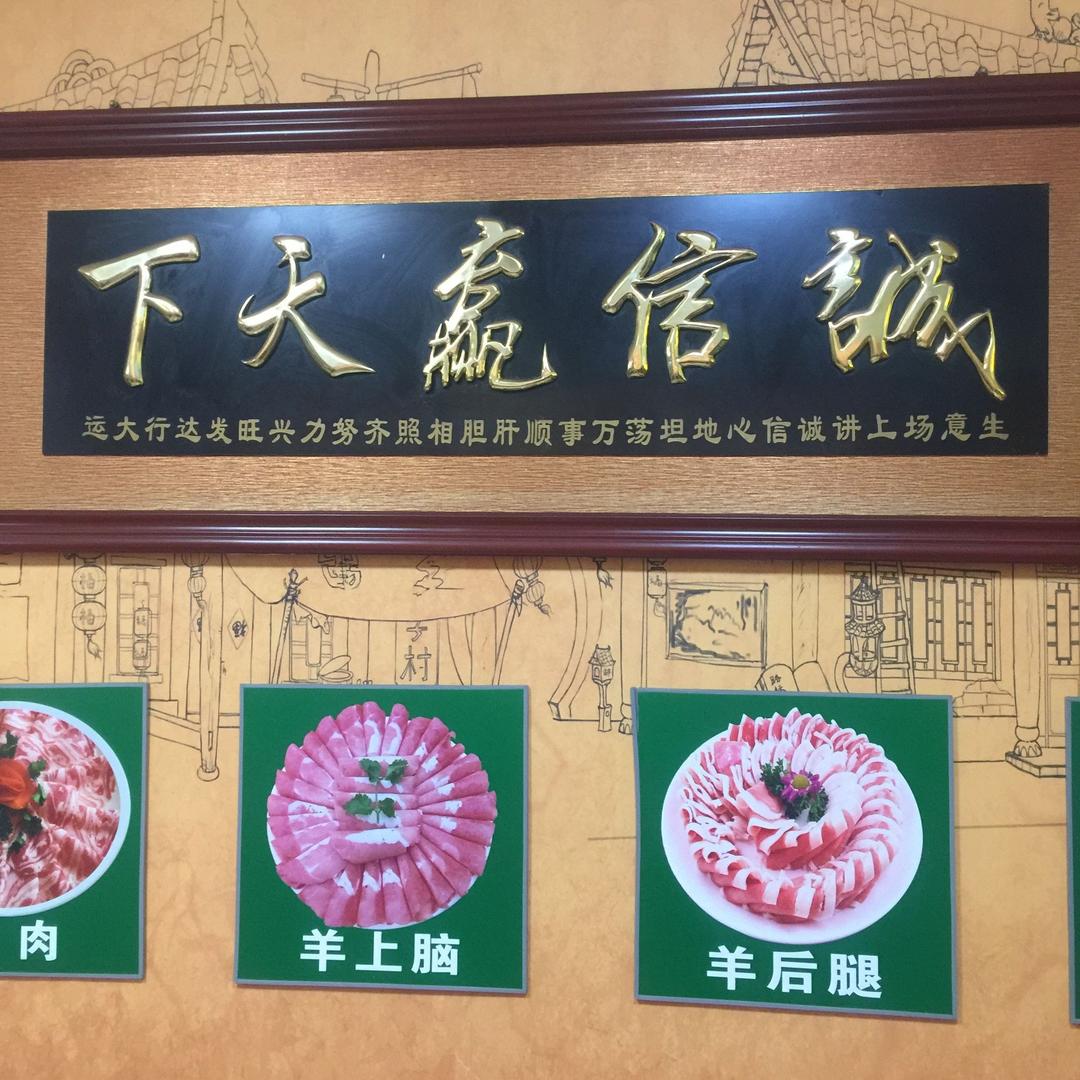 誠信赢天下
生意场上讲诚信心地坦荡万事顺肝胆相照齐努力兴旺发达行大运
村
肉
羊上脑
羊后腿